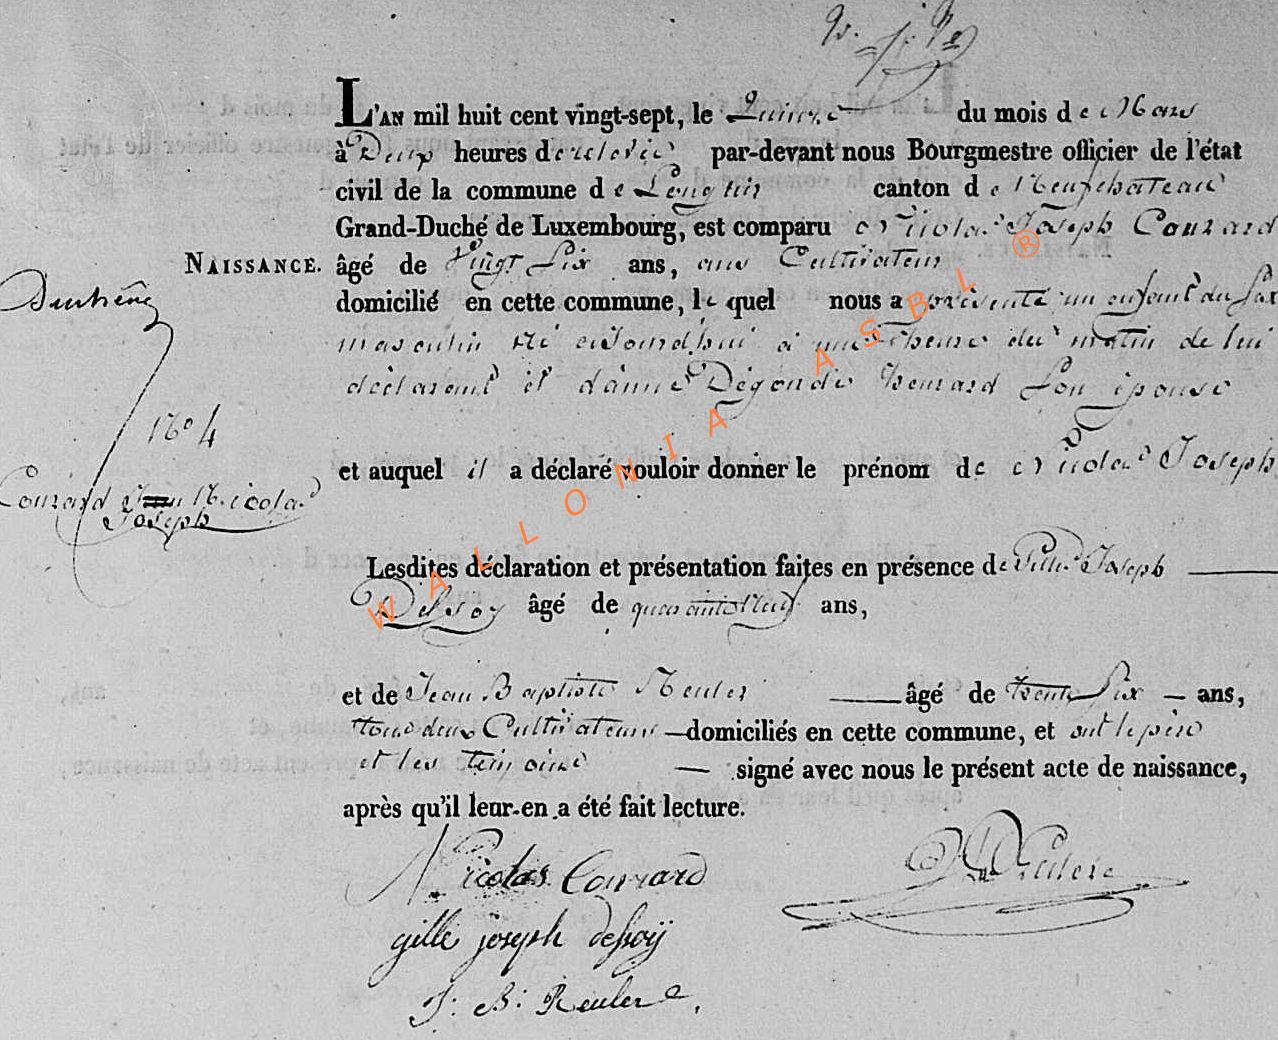 L'AN mil huit cent vingt-sept, le Quinze du mois de Mars
à Deux heures de relevée par-devant nous Bourgmestre officier de l'état
civil de la commune de Longlier canton de Neufchateau
Grand-Duché de Luxembourg, est comparu Nicolas Joseph Conrard
NAISSANCE. âgé de vingt Six ans, Cultivateur
domicilié en cette commune, lequel nous a présenté un enfant du Sex
masculin né aujourd'hui à une heure du matin de lui
déclarant et d'anne Dégonde henrard Son épouse
1604
et auquel il a déclaré vouloir donner le prénom de Nicolas Joseph
Conrard Jean Nicolas
Joseph
Lesdites déclaration et présentation faites en présence de Gille Joseph
Dessoy âgé de quarante neuf ans,
et de Jean Baptiste Reuler âgé de trente Six ans,
tous deux Cultivateurs domiciliés en cette commune, et ont le père
et les temoins signé avec nous le présent acte de naissance,
après qu'il leur en a été fait lecture.
Nicolas Conrard
gille joseph dessoÿ
J: B: Reuler
WALLONIA ASBL ®